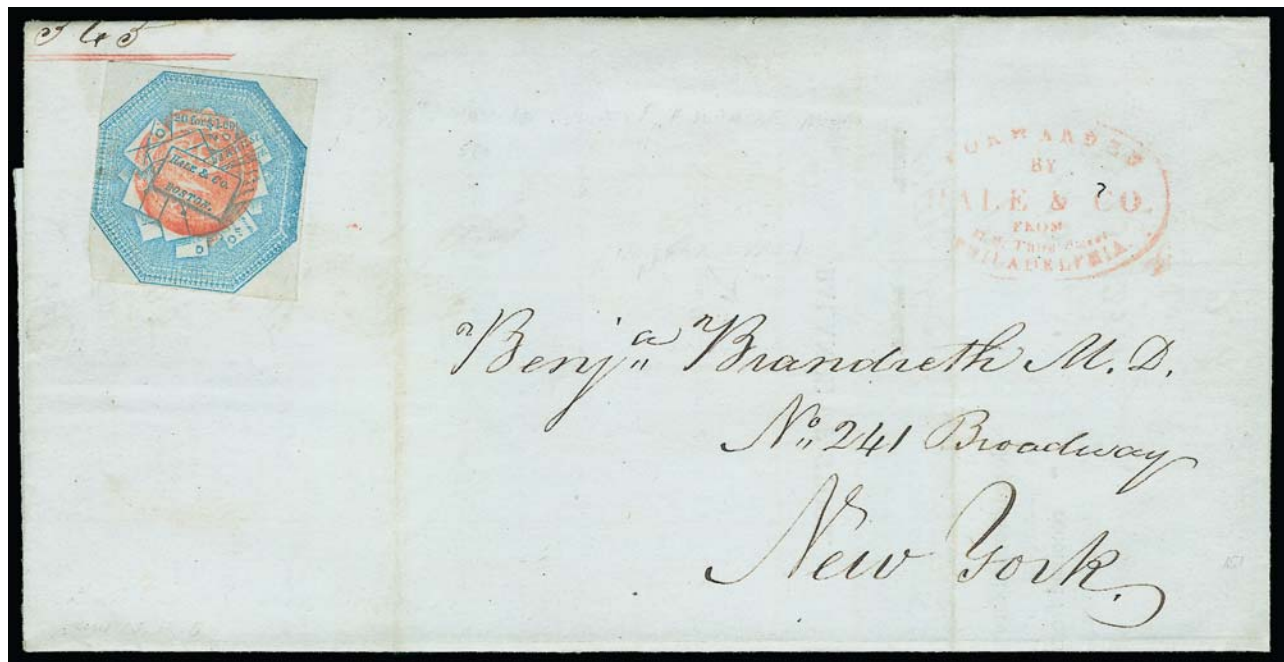 345
20 for $1.00
HALE & CO.
BOSTON.
FORWARDED
BY
HALE & CO.
FROM
Third Street
PHILADELPHIA.
Benjᵃ Brandreth M. D.
Nº 241 Broadway
New York.
151